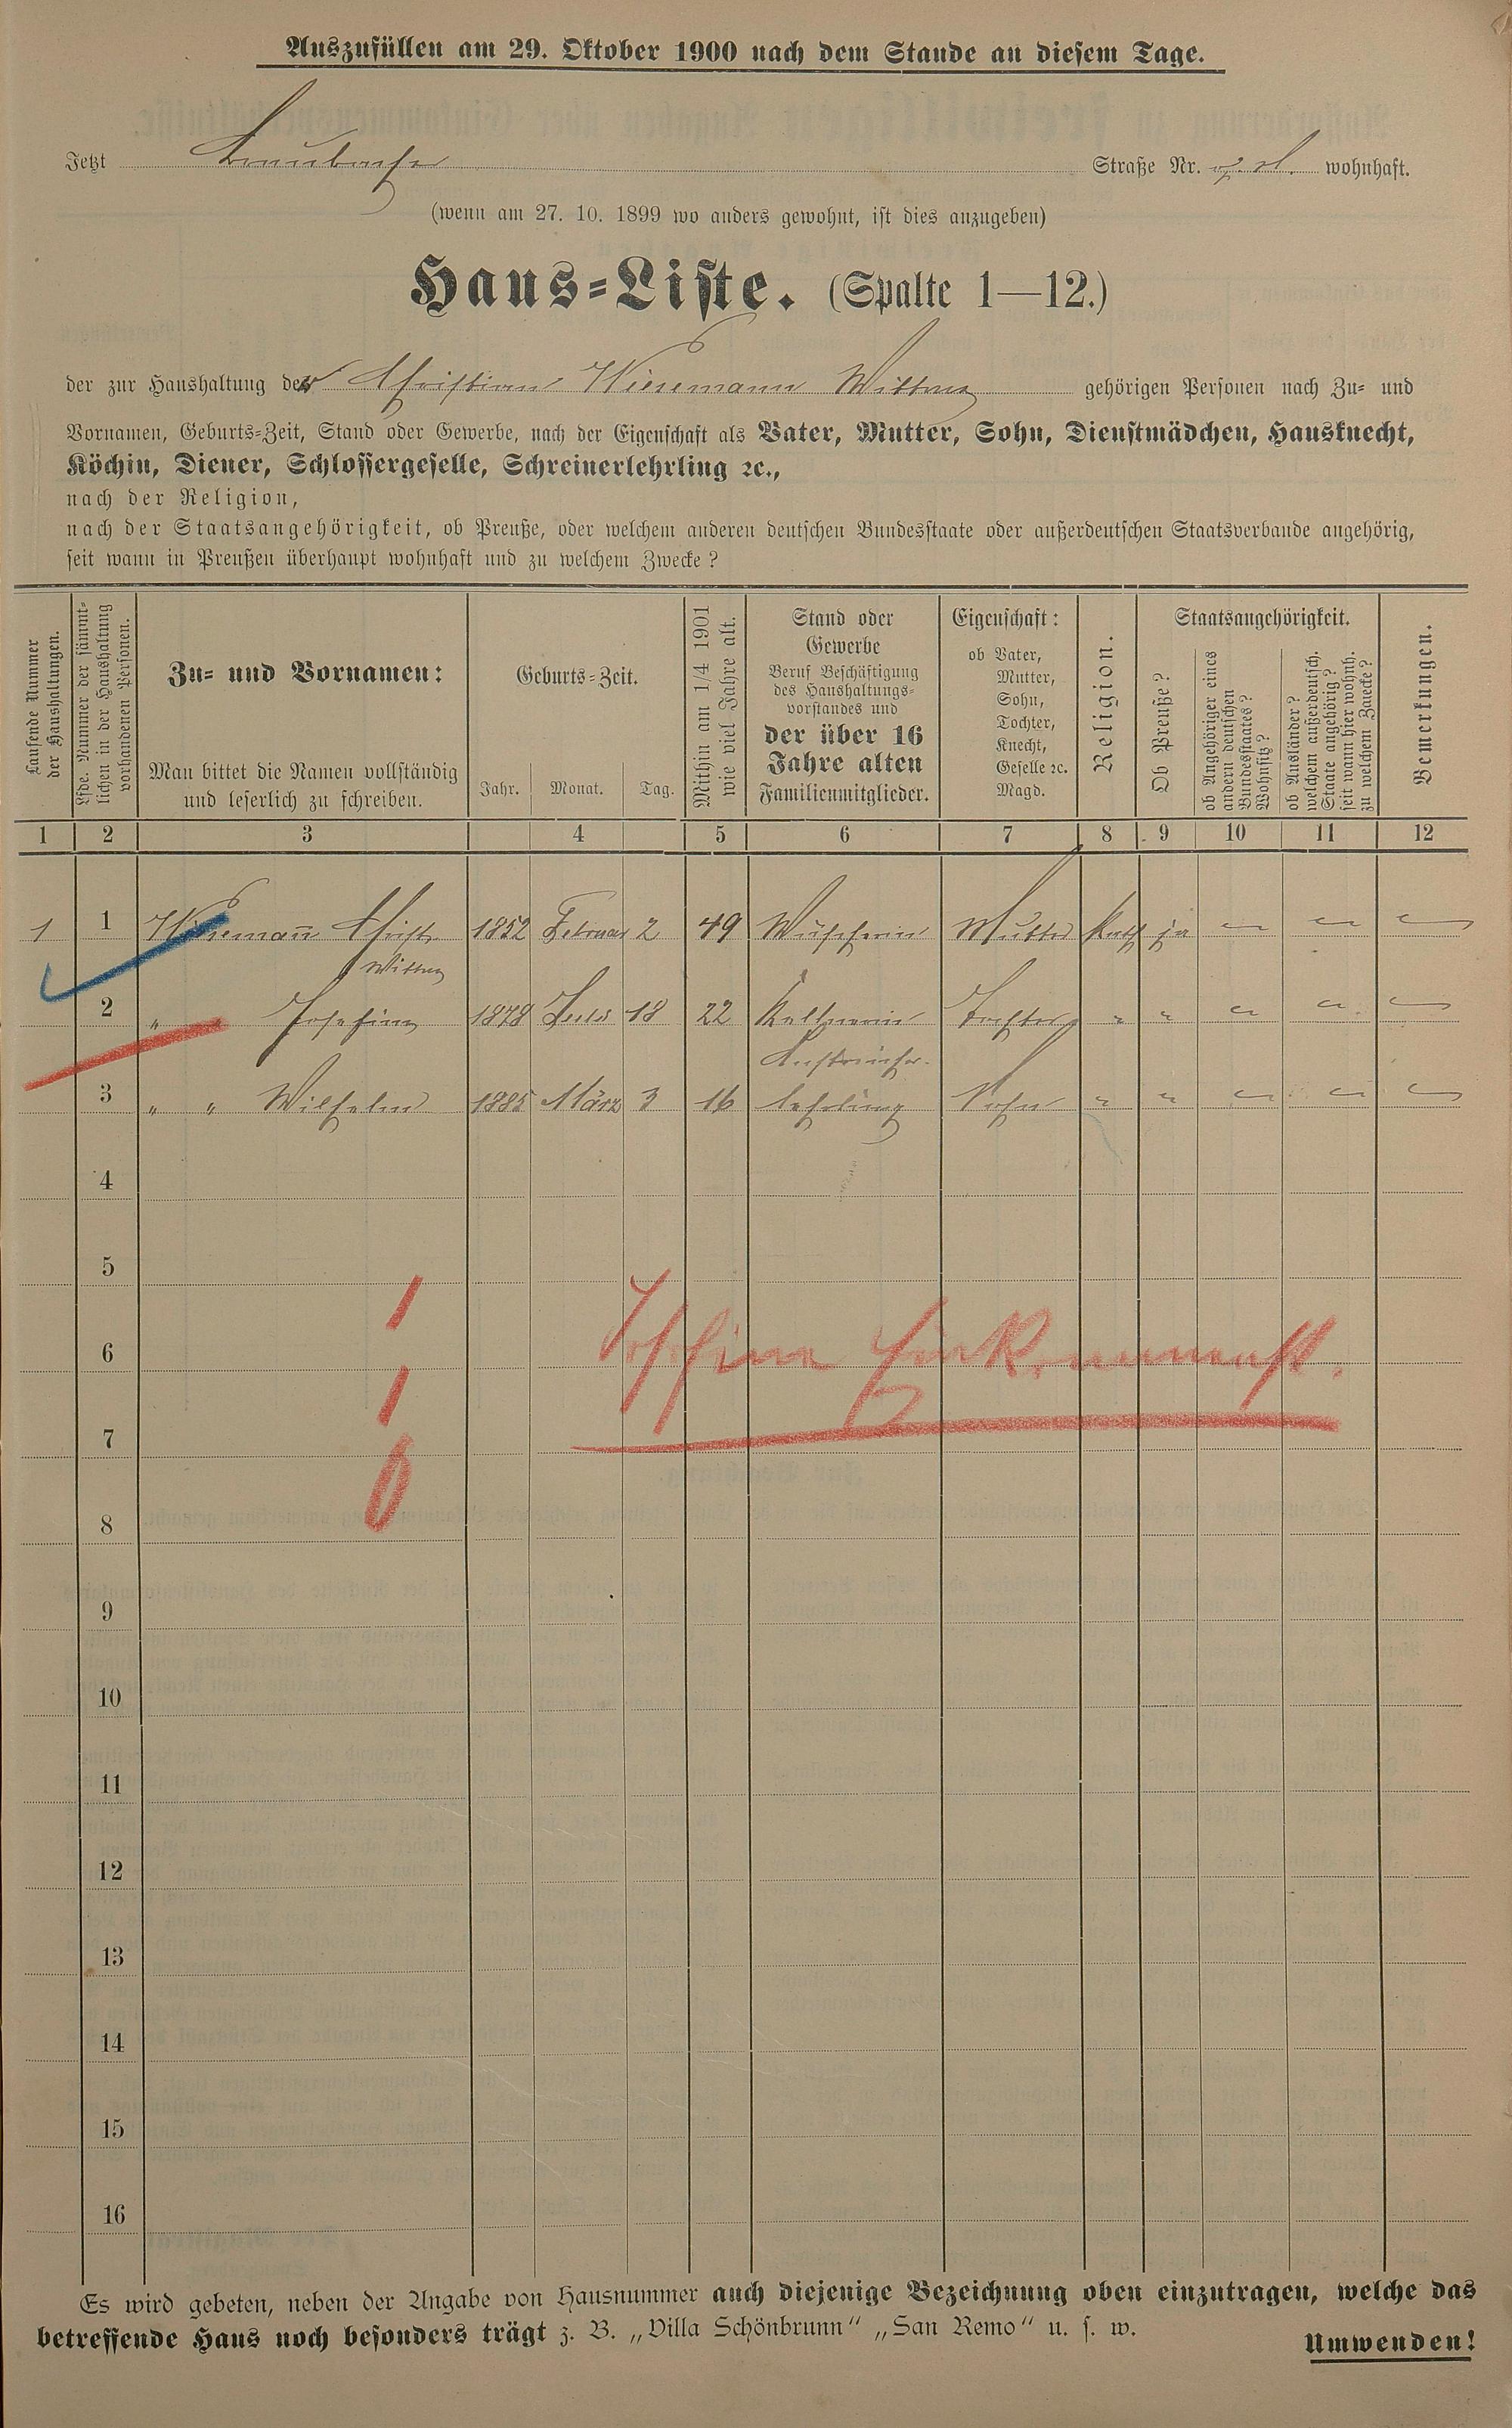 Auszufüllen am 29. Oktober 1900 nach dem Stande an diesem Tage.
Jetzt Straße Nr. wohnhaft.
(wenn am 27. 10. 1899 wo anders gewohnt, ist dies anzugeben)
Haus-Liste. (Spalte 1—12.)
der zur Haushaltung der Christian Wiesemann Wittwe gehörigen Personen nach Zu- und
Vornamen, Geburts-Zeit, Stand oder Gewerbe, nach der Eigenschaft als Vater, Mutter, Sohn, Dienstmädchen, Hausknecht,
Köchin, Diener, Schlossergeselle, Schreinerlehrling ꝛc.,
nach der Religion,
nach der Staatsangehörigkeit, ob Preuße, oder welchem anderen deutschen Bundesstaate oder außerdeutschen Staatsverbande angehörig,
seit wann in Preußen überhaupt wohnhaft und zu welchem Zwecke?
Laufende Nummer
der Haushaltungen.
Lfde. Nummer der sämmt-
lichen in der Haushaltung
vorhandenen Personen.
Zu- und Vornamen:
Man bittet die Namen vollständig
und leserlich zu schreiben.
Geburts-Zeit.
Jahr. Monat. Tag.
Mithin am 1/4 1901
wie viel Jahre alt.
Stand oder
Gewerbe
Beruf Beschäftigung
des Haushaltungs-
vorstandes und
der über 16
Jahre alten
Familienmitglieder.
Eigenschaft:
ob Vater,
Mutter,
Sohn,
Tochter,
Knecht,
Geselle ꝛc.
Magd.
Religion.
Staatsangehörigkeit.
Ob Preuße?
ob Angehöriger eines
andern deutschen
Bundesstaates?
Wohnsitz?
ob Ausländer?
welchem außerdeutsch.
Staate angehörig?
seit wann hier wohnh.
zu welchem Zwecke?
Bemerkungen.
1 2 3 4 5 6 7 8 9 10 11 12
1 1 Wiesemann Christ. 1852 Februar 2 49 Wäscherin Mutter kath ja — — —
Wittwe
2 " " Josefine 1878 Juli 18 22 Kellnerin Tochter " " — — —
Anstreicher-
3 " " Wilhelm 1885 März 3 16 lehrling Sohn " " — — —
4
5
1
6 Josefine
1
7
0
8
9
10
11
12
13
14
15
16
Es wird gebeten, neben der Angabe von Hausnummer auch diejenige Bezeichnung oben einzutragen, welche das
betreffende Haus noch besonders trägt z. B. „Villa Schönbrunn“ „San Remo“ u. s. w.
Umwenden!